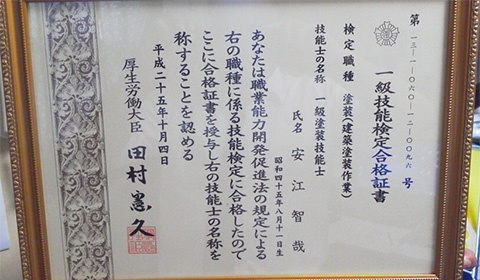 第一三-一-〇六〇-一二-〇〇九六号
一級技能検定合格証書
検定職種　塗装(建築塗装作業)
技能士の名称　一級塗装技能士
氏名　安江智哉
昭和四十五年八月十一日生
あなたは職業能力開発促進法の規定による
右の職種に係る技能検定に合格したので
ここに合格証書を授与し右の技能士の名称を
称することを認める
平成二十五年十月四日
厚生労働大臣　田村憲久